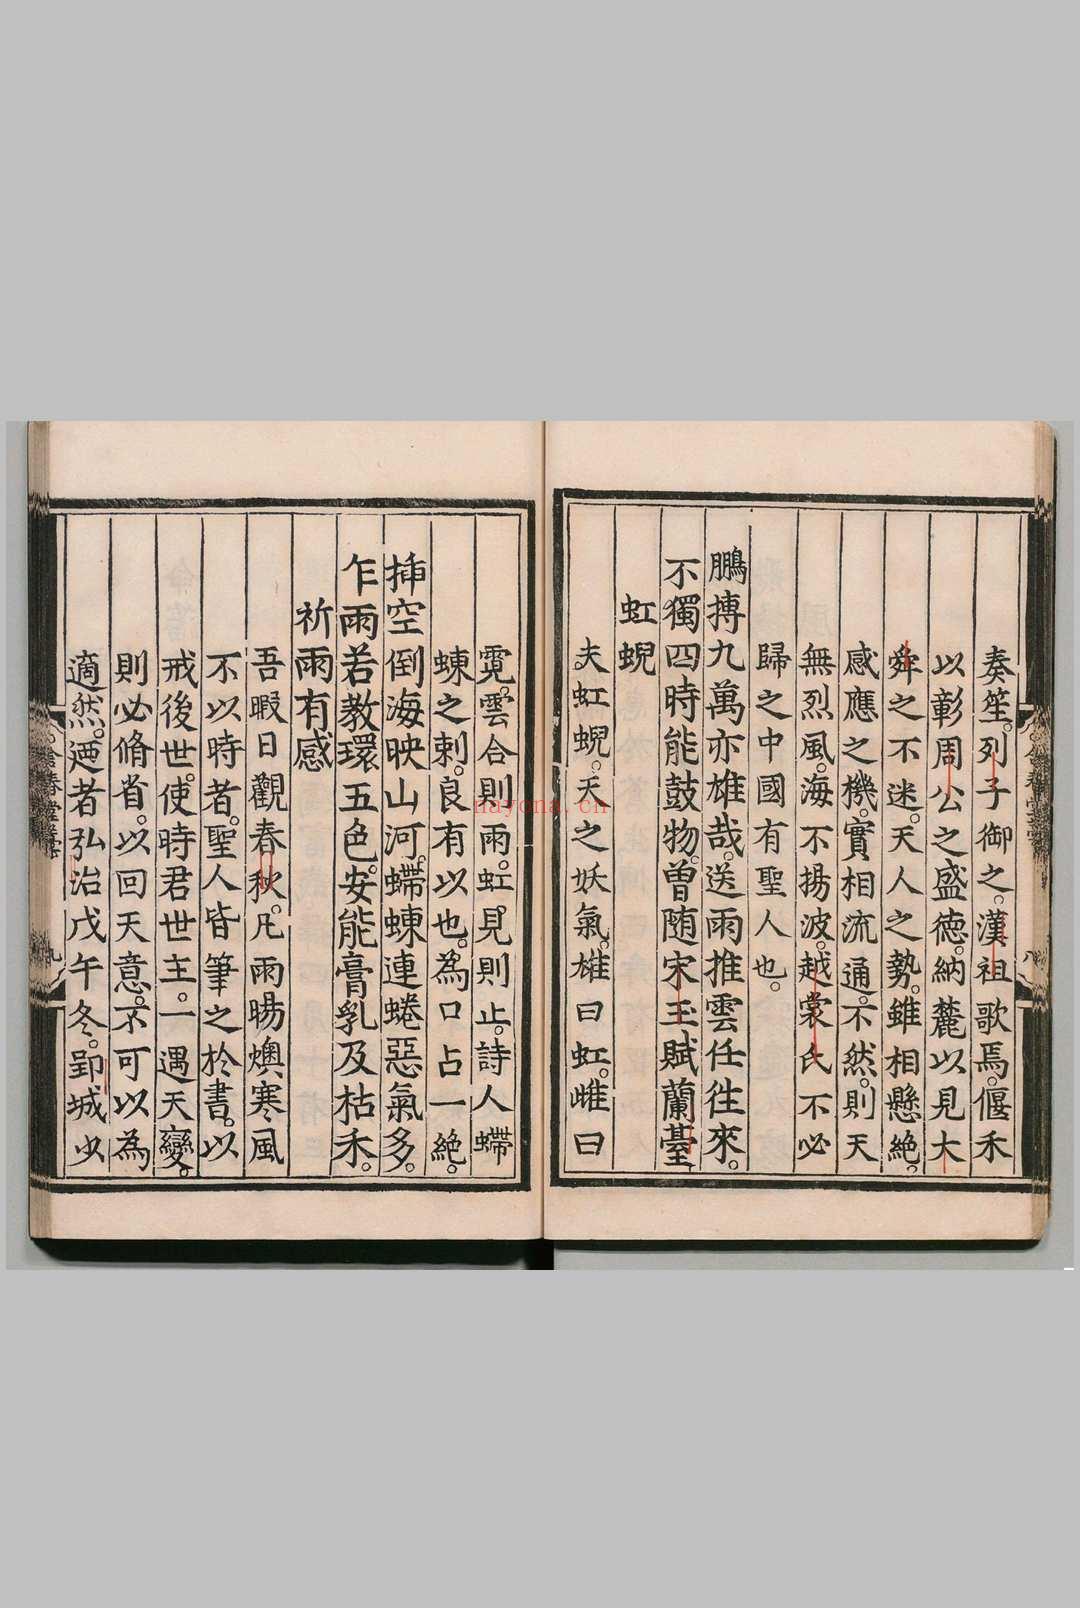 奏笙。列子御之。漢祖歌焉。偃禾
以彰周公之盛德。納麓以見大
舜之不迷。天人之勢。雖相懸絶。
感應之機。實相流通。不然。則天
無烈風。海不揚波。越裳氏不必
歸之中國有聖人也。
鵬搏九萬亦雄哉。送雨推雲任往來。
不獨四時能鼓物。曽随宋玉賦蘭臺
虹蜺
夫虹蜺。天之妖氣。雄曰虹。雌曰
霓。雲合則雨。虹見則止。詩人蝃
蝀之刺。良有以也。為口占一絶。
挿空倒海映山河。蝃蝀連蜷惡氣多。
乍雨若教環五色。安能膏乳及枯禾。
祈雨有感
吾暇日觀春秋。凡雨暘燠寒風
不以時者。聖人皆筆之於書。以
戒後世。使時君世主。一遇天變。
則必脩省。以回天意。不可以為
適然。廼者弘治戊午冬。郢城少
nayona.cn